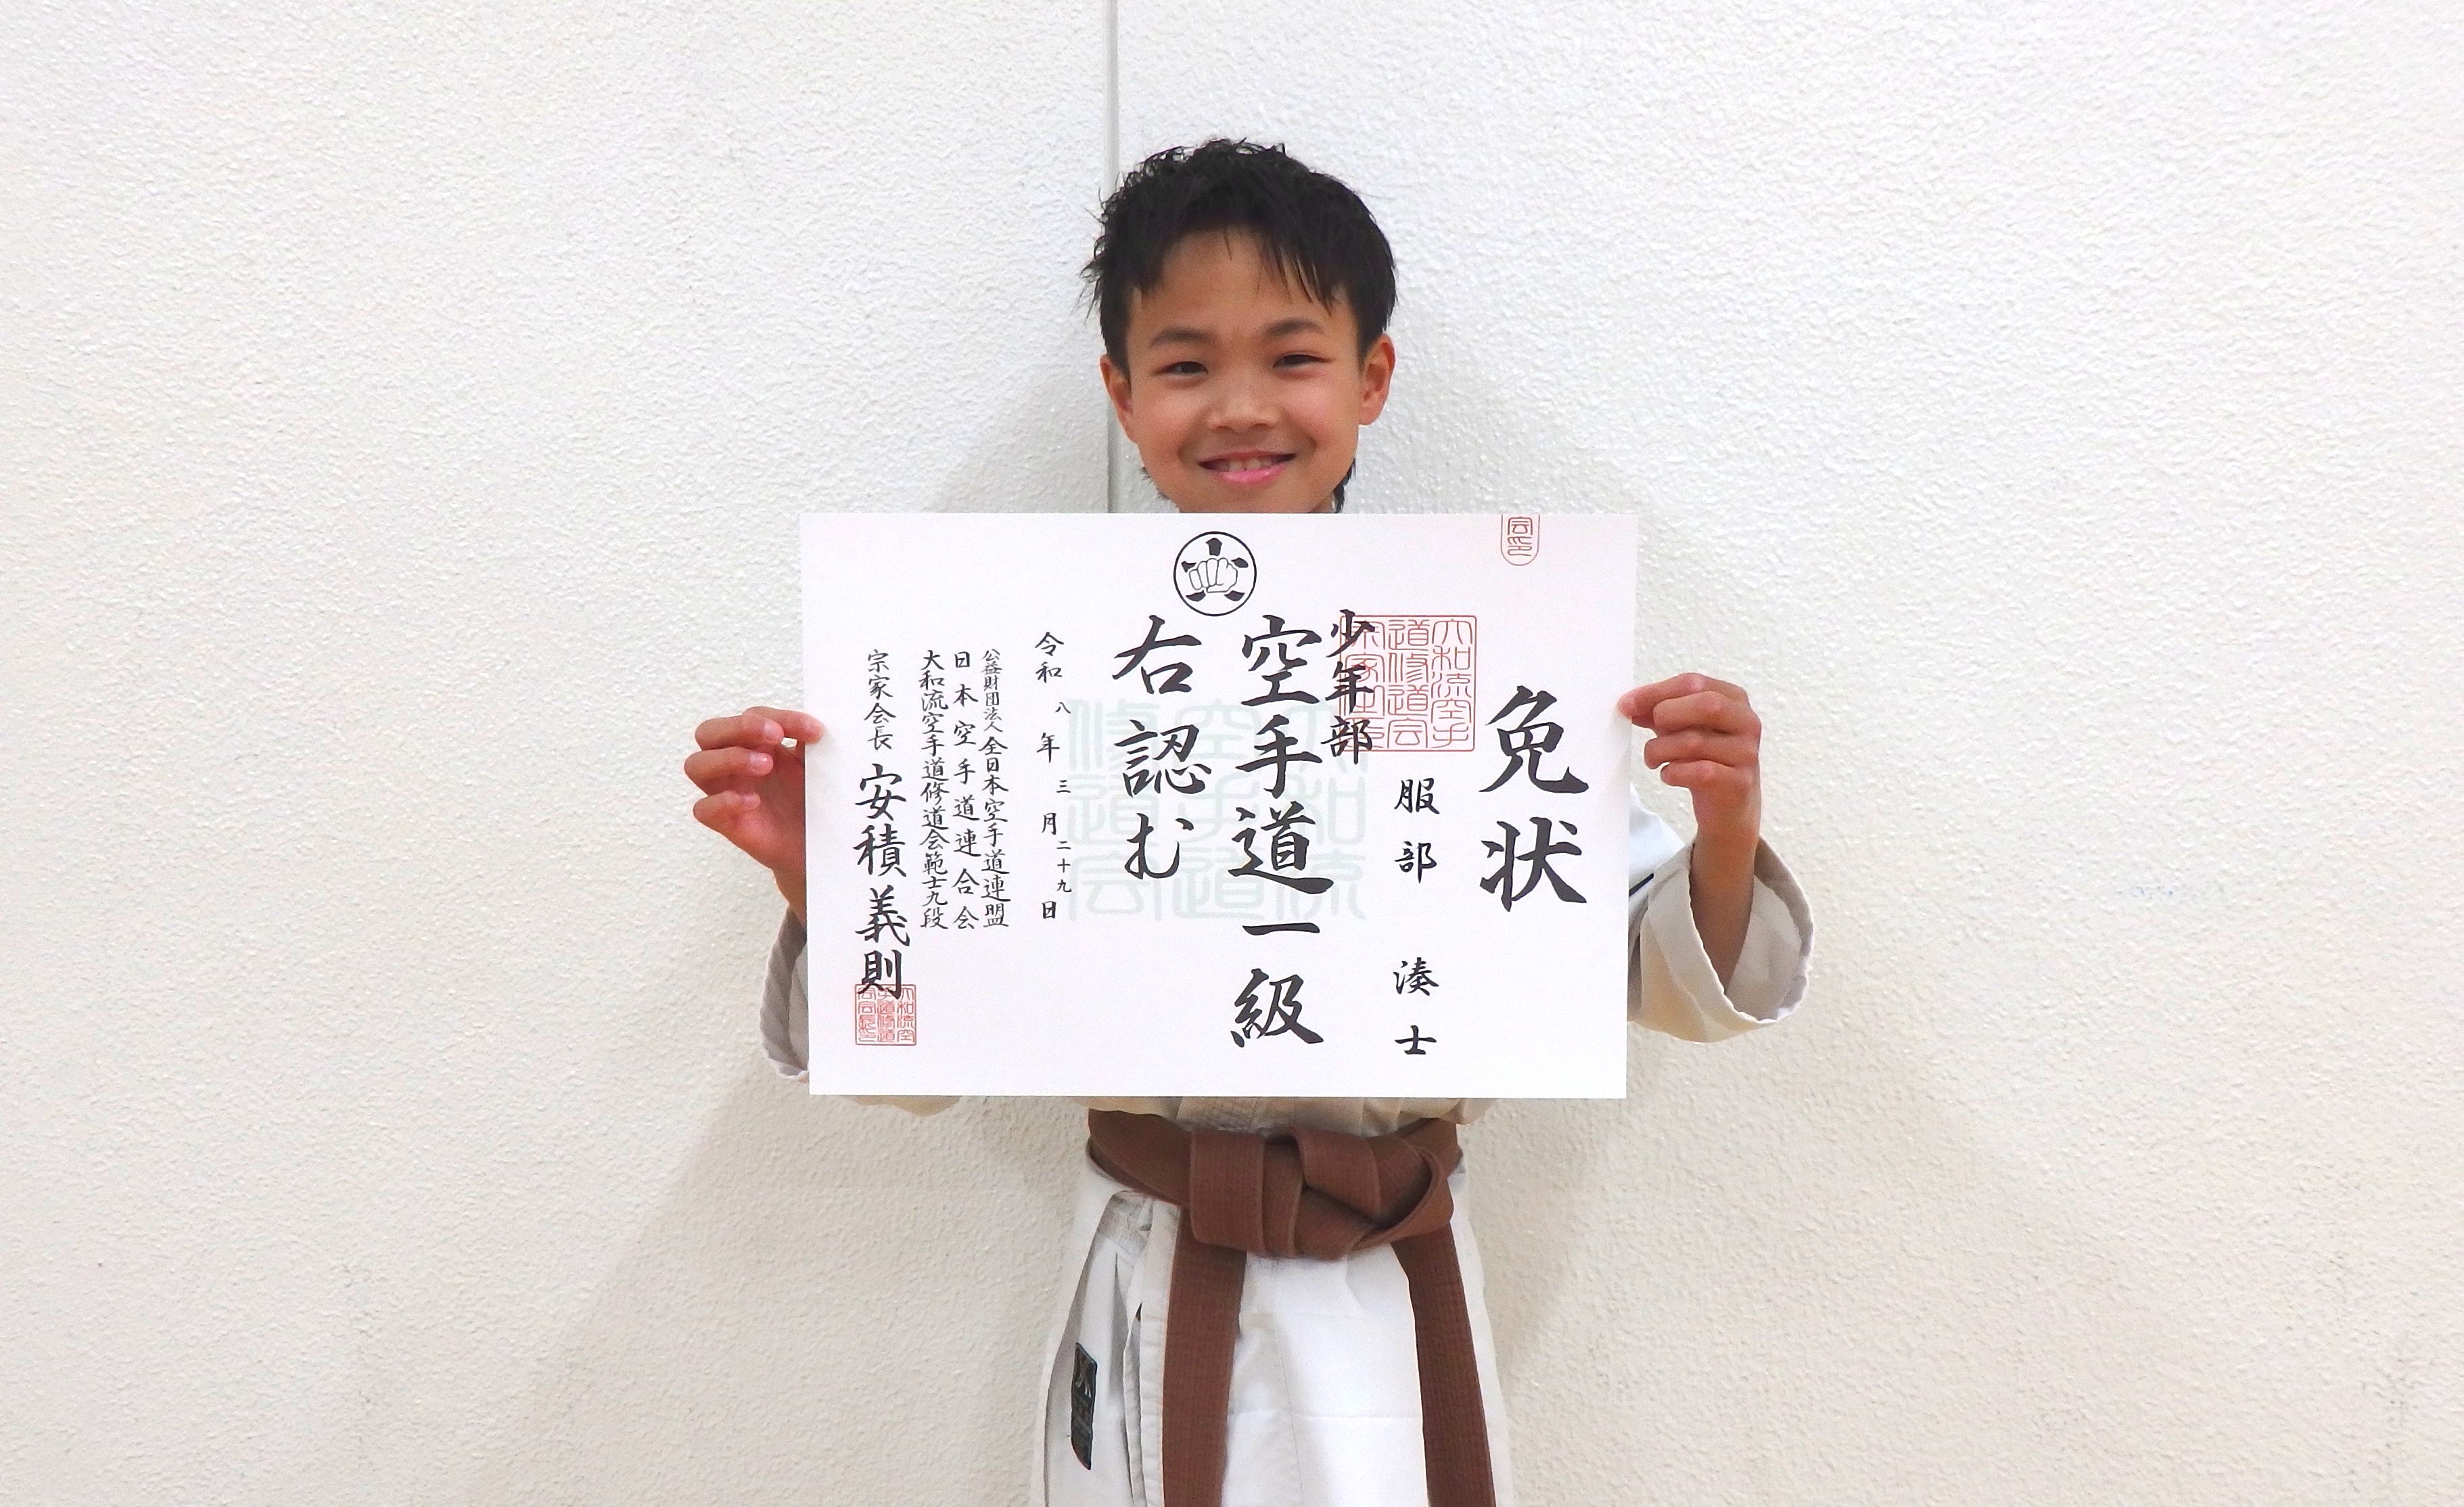 免状
服部 湊士
少年部
空手道一級
右認む
令和八年三月二十九日
公益財団法人全日本空手道連盟
日本空手道連合会
大和流空手道修道会範士九段
宗家会長 安積義則